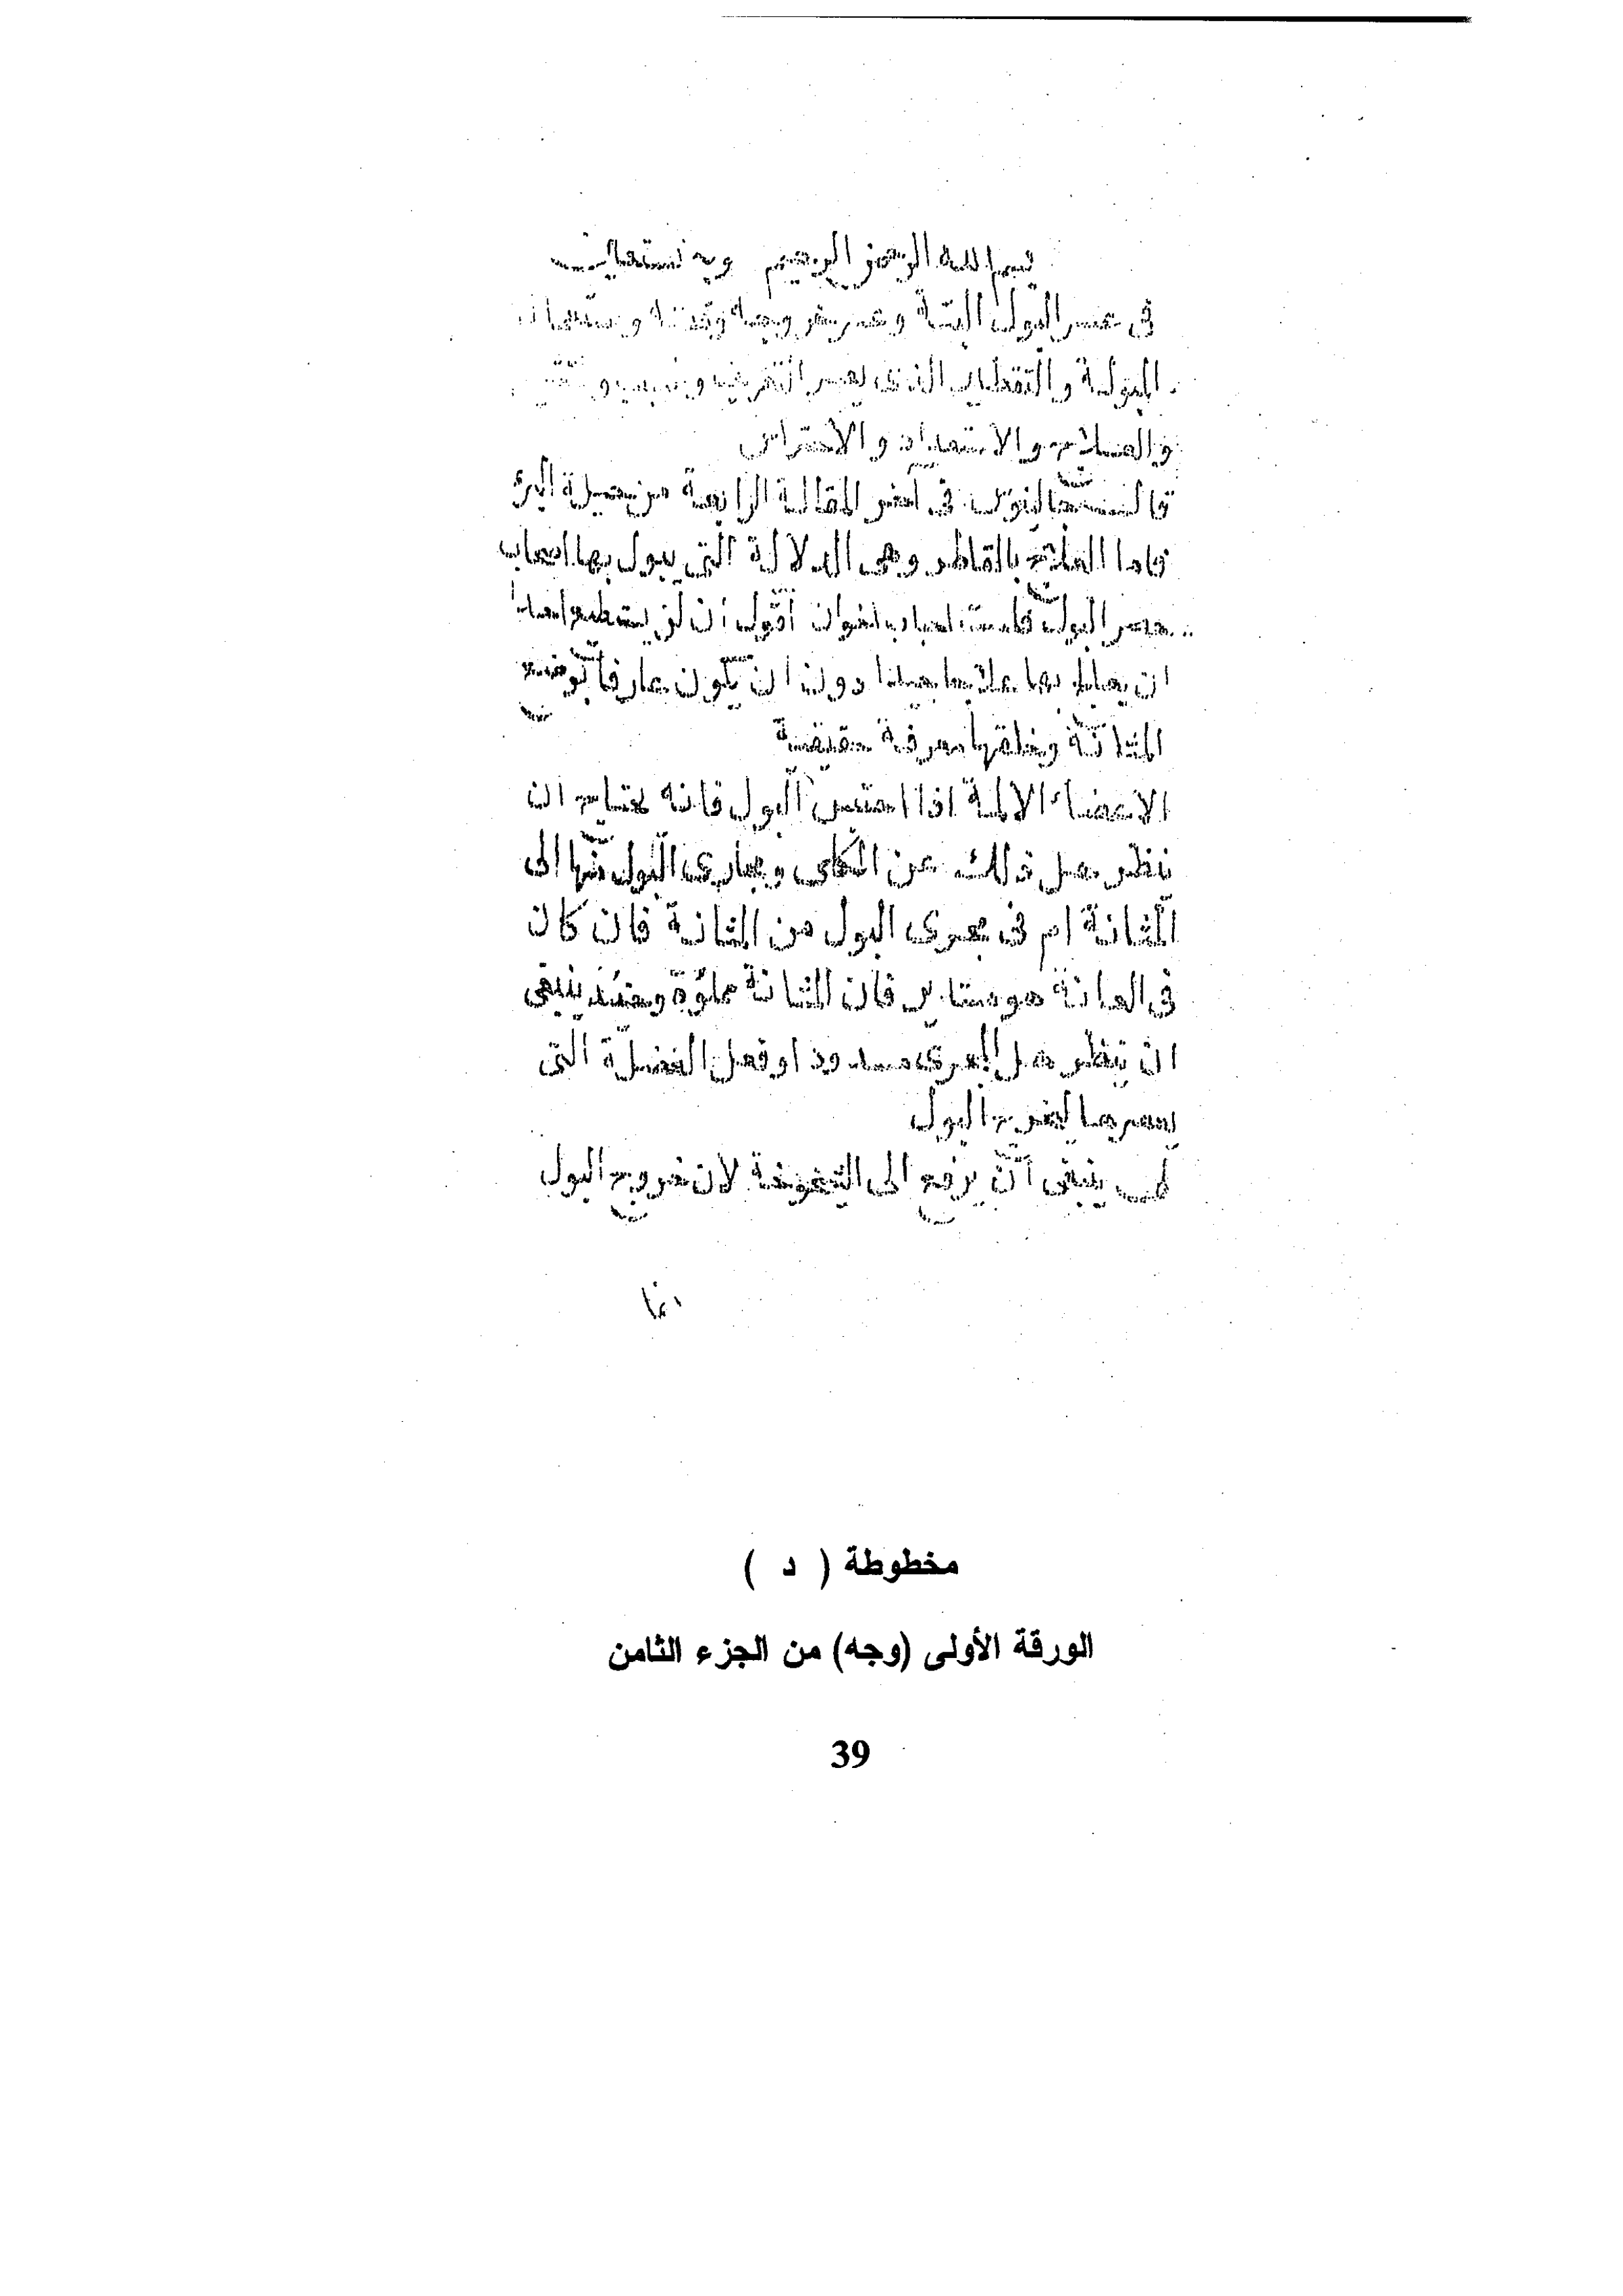 بسم الله الرحمن الرحيم وبه نستعين
فى عسر البول البتة و
المولة والتقطير الذى و
والعلاج والاستعداد والاحتراس
قال جالينوس فى اخر المقالة الرابعة من حيلة البرء
فاما العلاج بالقاطر وهى الدلالة التى يبول بها اصحاب
حصر البول اقول ان لن يستطيع احدا
ان يعالج بها علاجا جيدا دون ان يكون عارفا بوضع
المثانة وخلقها معرفة حقيقية
الاعضاء الالمة اذا احتبس البول فانه يحتاج ان
ينظر هل ذلك عن الكلى ومجارى البول منها الى
المثانة ام فى مجرى البول من المثانة فان كان
فى العانة فان المثانة مملوة وحينئذ ينبغى
ان ينظر هل المجرى مسدود او فعل العضلة التى
يعصرها ليخرج البول
لى ينبغى ان يرفع الى لان خروج البول
انما
مخطوطة ( د )
الورقة الأولى (وجه) من الجزء الثامن
39